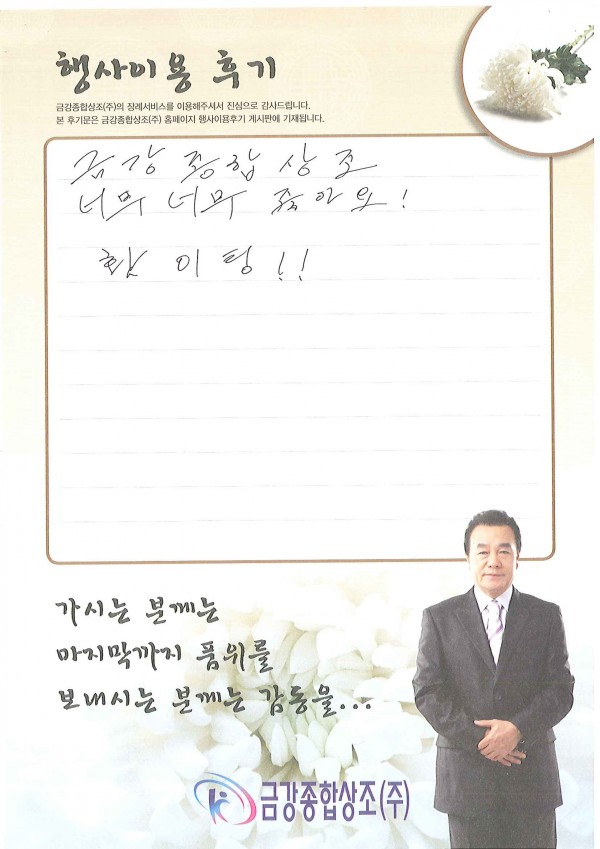 행사이용 후기
금강종합상조(주)의 장례서비스를 이용해주셔서 진심으로 감사드립니다.
본 후기문은 금강종합상조(주) 홈페이지 행사이용후기 게시판에 기재됩니다.
금강종합상조
너무너무 좋아요!
화이팅!!
가시는 분께는
마지막까지 품위를
보내시는 분께는 감동을...
금강종합상조(주)